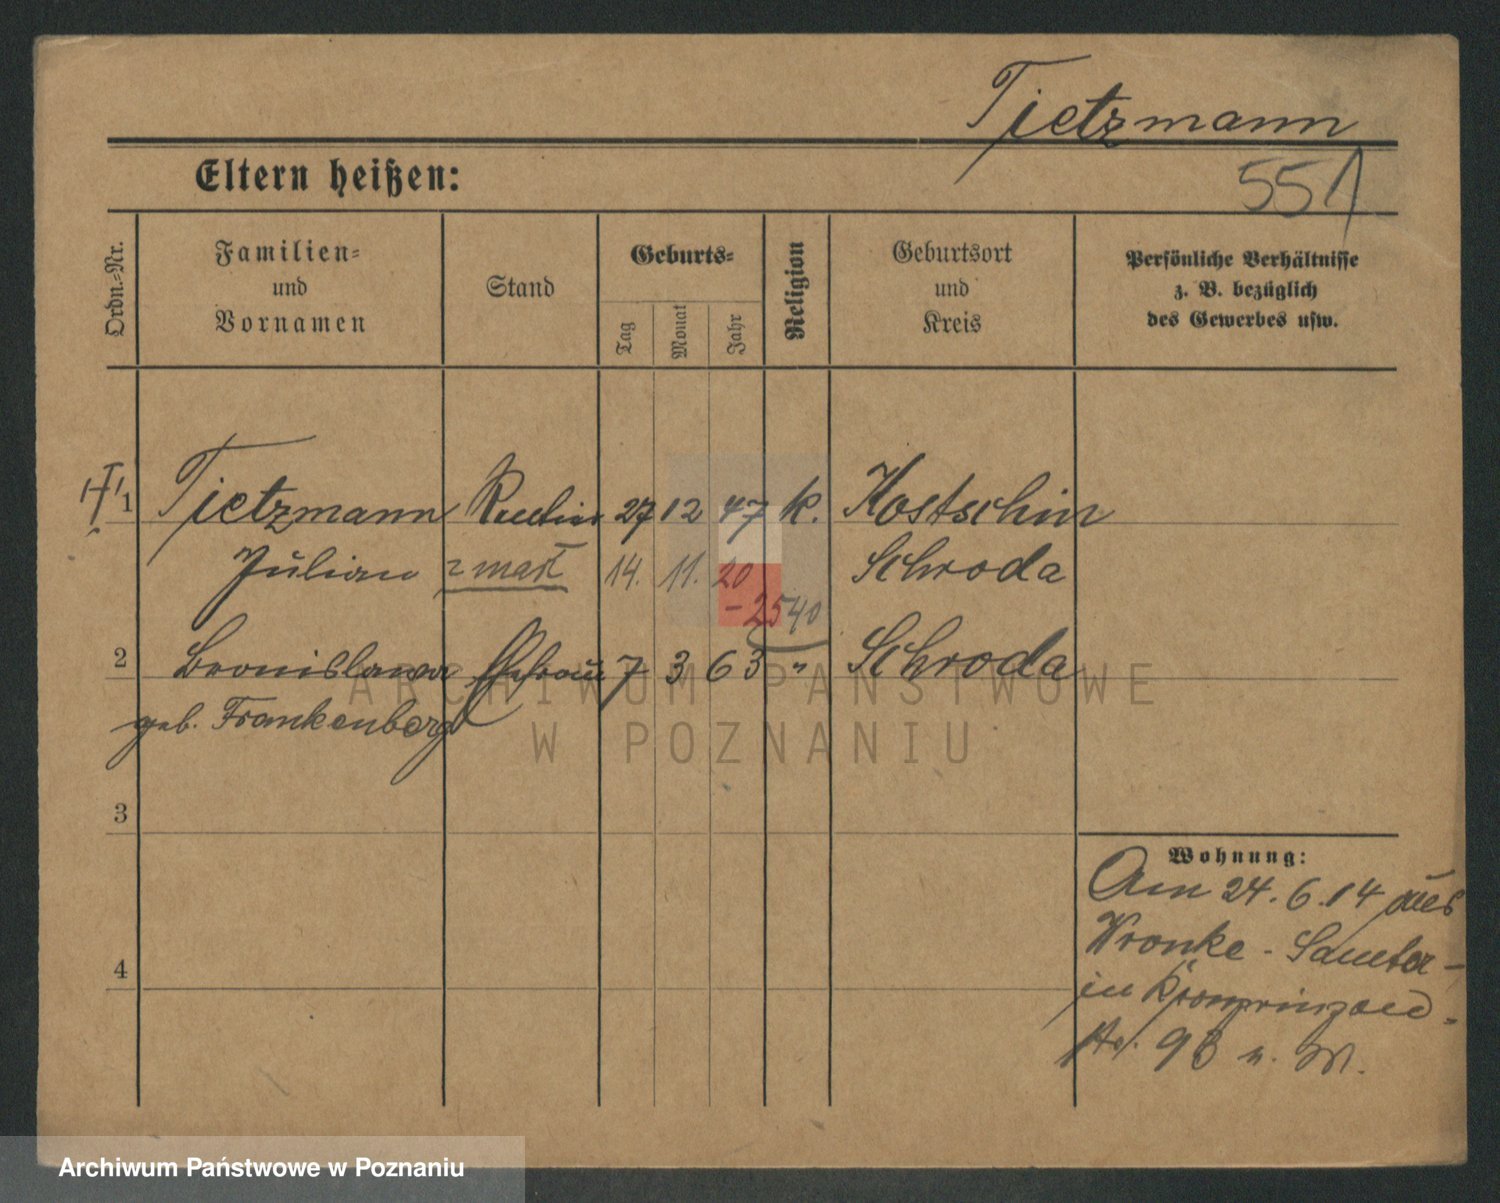 Tietzmann
551
Eltern heißen:
Ordn.-Nr.
Familien-
und
Vornamen
Stand
Geburts-
Tag
Monat
Jahr
Religion
Geburtsort
und
Kreis
Persönliche Verhältnisse
z. B. bezüglich
des Gewerbes usw.
1 Tietzmann Rentier 27 12 47 k. Kostschin
Julian zmarł 14. 11. 20 Schroda
-2540
2 Bronislawa Ehefrau 7 3 63 " Schroda
geb. Frankenberg
ARCHIWUM PAŃSTWOWE
W POZNANIU
3
Wohnung:
Am 24.6.14 aus
Wronke - Samter -
in Kronprinzen-
str. 93 n. M.
4
Archiwum Państwowe w Poznaniu